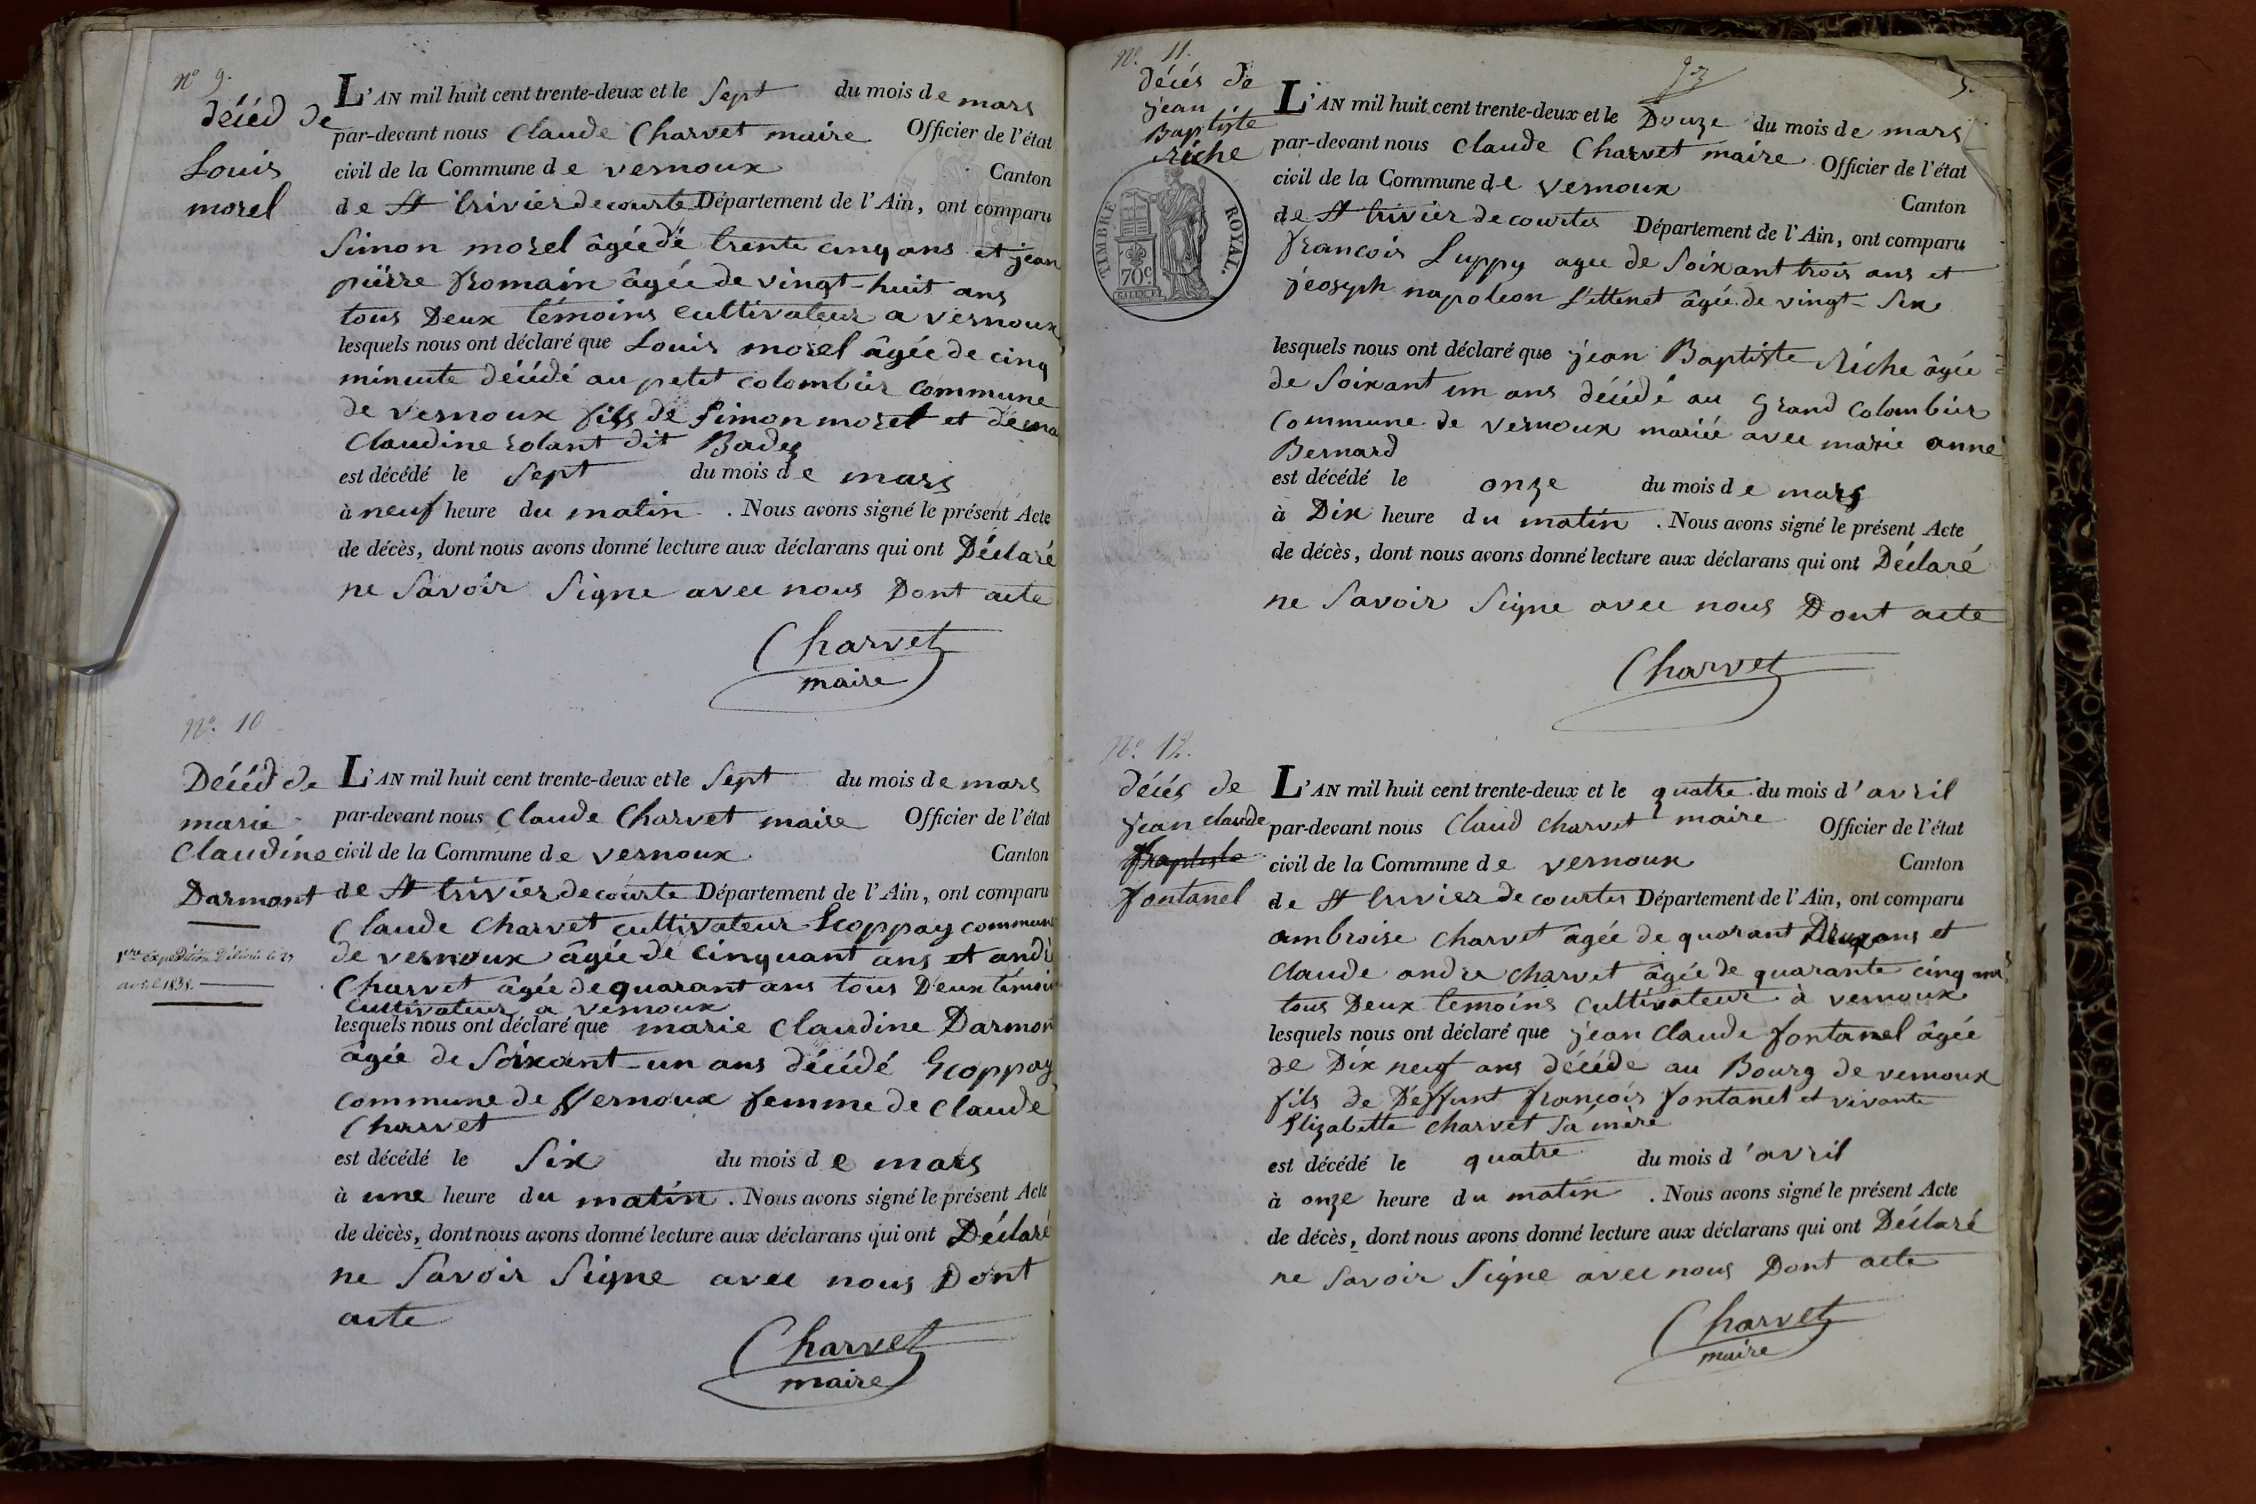 N° 9.
décéd de
Louis
morel
L'AN mil huit cent trente-deux et le sept du mois de mars
par-devant nous Claude Charvet maire Officier de l'état
civil de la Commune de vernoux Canton
de St trivier de courte Département de l'Ain, ont comparu
Simon morel âgée de trente cinq ans et jean
pierre fromain âgée de vingt-huit ans
tous Deux témoins cultivateur a vernoux
lesquels nous ont déclaré que Louis morel âgée de cinq
minute décédé au petit colombier commune
de vernoux fils de Simon morel et de
Claudine rolant dit
est décédé le sept du mois de mars
à neuf heure du matin. Nous avons signé le présent Acte
de décès, dont nous avons donné lecture aux déclarans qui ont Déclaré
ne Savoir Signe avec nous Dont acte
Charvet
maire
N° 10
Décéd de
marie
Claudine
Darmont
1ère expédition Délivré le 27
avril 1838.
L'AN mil huit cent trente-deux et le sept du mois de mars
par-devant nous Claude Charvet maire Officier de l'état
civil de la Commune de vernoux Canton
de St trivier de courte Département de l'Ain, ont comparu
Claude Charvet cultivateur commune
de vernoux âgée de cinquant ans et andré
Charvet âgée de quarant ans tous Deux témoin
cultivateur a vernoux
lesquels nous ont déclaré que marie Claudine Darmon
âgée de Soixant-un ans décédé
commune de Vernoux femme de Claude
Charvet
est décédé le Six du mois de mars
à une heure du matin. Nous avons signé le présent Acte
de décès, dont nous avons donné lecture aux déclarans qui ont Déclaré
ne Savoir Signe avec nous Dont
acte
Charvet
maire
N° 11.
décés de
jean
Baptiste
riche
TIMBRE ROYAL.
70c
5.
L'AN mil huit cent trente-deux et le Douze du mois de mars
par-devant nous Claude Charvet maire Officier de l'état
civil de la Commune de vernoux
Canton
de St trivier de courtes Département de l'Ain, ont comparu
francois Luppy agee de Soixant trois ans et
jeosyph napoleon âgée de vingt-Six
lesquels nous ont déclaré que jean Baptiste Riche âgée
de Soixant un ans décédé au grand colombier
Commune de vernoux mariée avec marie anne
Bernard
est décédé le onze du mois de mars
à Dix heure du matin. Nous avons signé le présent Acte
de décès, dont nous avons donné lecture aux déclarans qui ont Déclaré
ne Savoir Signe avec nous Dont acte
Charvet
N° 12.
décés de
jean claude
Baptiste
fontanel
L'AN mil huit cent trente-deux et le quatre du mois d'avril
par-devant nous Claud Charvet maire Officier de l'état
civil de la Commune de vernoux Canton
de St trivier de courtes Département de l'Ain, ont comparu
ambroise Charvet âgée de quarant Deux ans et
Claude andre Charvet âgée de quarante cinq ans
tous Deux temoins cultivateur à vernoux
lesquels nous ont déclaré que jean Claude fontanel âgée
de Dix neuf ans décédé au Bourg de vernoux
fils de Deffunt françois fontanel et vivante
Elizabette Charvet Sa mère
est décédé le quatre du mois d'avril
à onze heure du matin. Nous avons signé le présent Acte
de décès, dont nous avons donné lecture aux déclarans qui ont Déclaré
ne Savoir Signe avec nous Dont acte
Charvet
maire